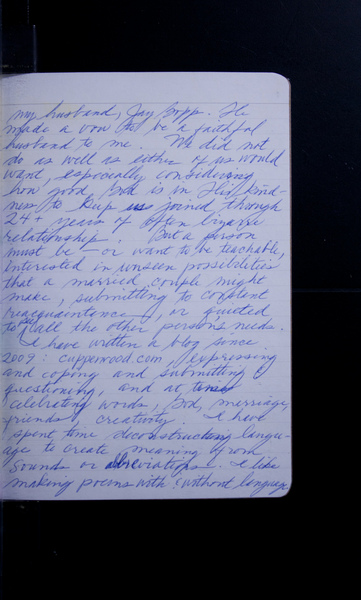 my husband, Jay Bopp. He
made a vow to be a faithful
husband to me. We did not
do as well as either of us would
want, especially considering
how good God is in His kind-
ness to keep us joined through
24+ years of often bizarre
relationship. But a person
must be – or want to be teachable,
interested in unseen possibilities
that a married couple might
make, submitting to constant
reacquaintence, or guided
to call the other person's needs.
I have written a blog since
2009: cuppewood.com, expressing
and coping and submitting &
questioning, and at times
celebrating words, God, marriage,
friends, creativity. I have
spent time deconstructing langu-
age to create meaning from
sounds or abreviations. I like
making poems with & without language